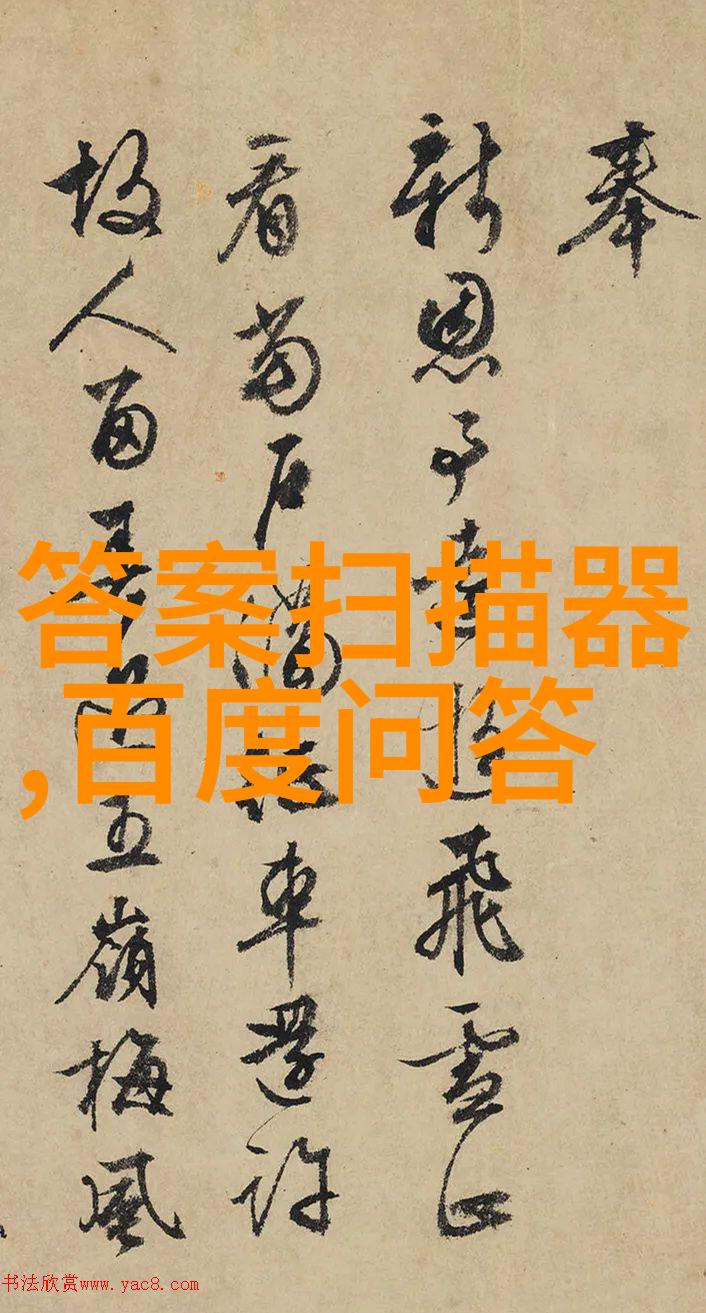 奉
新恩予趋飛雪正
看石車還許
故人留五嶺梅風
答案扫描器
,百度问答
书法欣赏www.yac8.com